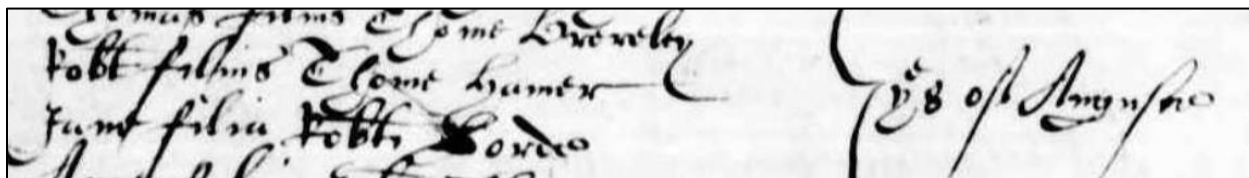 Thomas filius Thome Brereley
Robt filius Thome Hamer
Jane filia Robti Lorde
ye 8 of Auguste